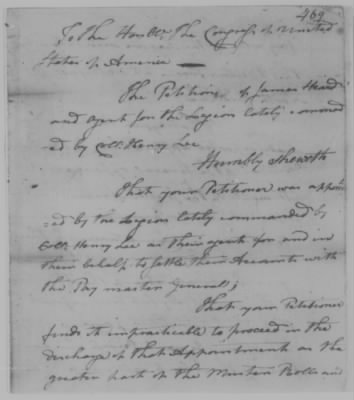 469
To the Honble. the Congress of United
States of America
The Petition of James Heard
and agent for the Legion lately command
ed by Coll. Henry Lee
Humbly Sheweth
That your Petitioner was appoint
:ed by the Legion lately commanded by
Coll. Henry Lee as their agent for and in
their behalf to settle their Accounts with
the Pay master General;
That your Petitioner
finds it impracticable to proceed in the
discharge of that Appointment as the
greater part of the Muster Rolls and